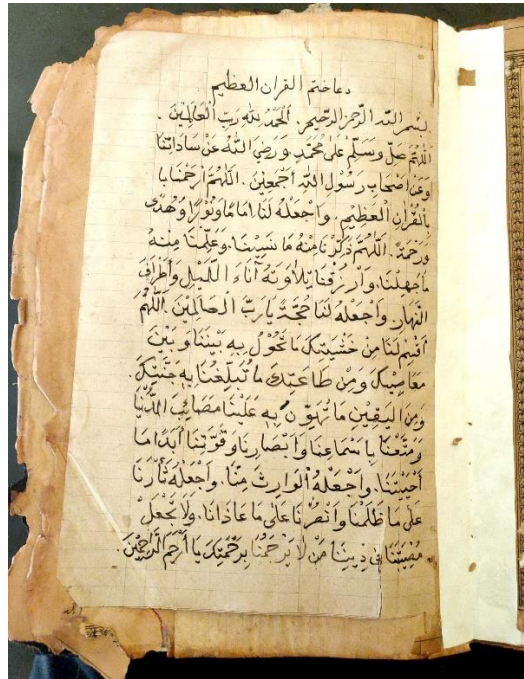 دعا ختم القران العظيم
بسم الله الرحمن الرحيم. اَلحَمْدُ لِلّٰهِ رَبِّ الْعَالَمِيْنَ.
اَللّٰهُمَّ صَلِّ وَسَلِّمْ عَلٰى مُحَمَّدٍ. وَرَضِيَ اللّٰهُ عَنْ سَادَاتِنَا
وَعَنْ اَصْحَابِ رَسُوْلِ اللّٰهِ اَجْمَعِيْنَ. اَللّٰهُمَّ ارْحَمْنَا يا
بِالْقُرْاٰنِ الْعَظِيْمِ. وَاجْعَلْهُ لَنَا اِمَامًا وَنُوْرًا وَهُدًى
وَرَحْمَةً. اَللّٰهُمَّ ذَكِّرْنَا مِنْهُ مَا نَسِيْنَا. وَعَلِّمْنَا مِنْهُ
مَا جَهِلْنَا. وَارْزُقْنَا تِلَاوَتَهُ اٰنَاءَ اللَّيْلِ وَاَطْرَافَ
النَّهَارِ وَاجْعَلْهُ لَنَا حُجَّةً يَا رَبَّ الْعَالَمِيْنَ. اَللّٰهُمَّ
اقْسِمْ لَنَا مِنْ خَشْيَتِكَ مَا تَحُوْلُ بِهِ بَيْنَنَا وَبَيْنَ
مَعَاصِيْكَ وَمِنْ طَاعَتِكَ مَا تُبَلِّغُنَا بِهِ جَنَّتَكَ.
وَمِنَ الْيَقِيْنِ مَا تُهَوِّنُ بِهِ عَلَيْنَا مَصَائِبَ الدُّنْيَا
وَمَتِّعْنَا بِاَسْمَاعِنَا وَاَبْصَارِنَا وَقُوَّتِنَا اَبَدًا مَا
اَحْيَيْتَنَا. وَاجْعَلْهُ الْوَارِثَ مِنَّا. وَاجْعَلْهُ ثَأْرَنَا
عَلٰى مَا ظَلَمْنَا وَانْصُرْنَا عَلٰى مَا عَادَانَا. وَلَا تَجْعَلْ
مُصِيْبَتَنَا فِى دِيْنِنَا مَنْ لَا يَرْحَمُنَا بِرَحْمَتِكَ يَا اَرْحَمَ الرَّاحِمِيْنَ.